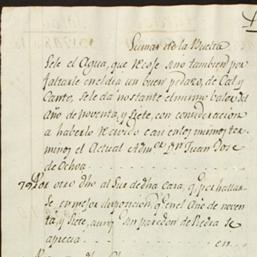 Sumas de la Vuelta
sele el Agua, que Recoje sino tambien por
faltarle en el dia un buen pedazo, de Cal y
Canto, se le da no stante el mismo valor del
Año de noventa, y siete, con consideracion
a haberlo Recivido casi en los mismos ter-
minos el Actual Adm.or Dn Juan Jose
de Ochoa
79 Por otro dho al Sur de dha Casa, q.e por hallar
se en mejor disposicion, q.e en el Año de noven
ta, y siete, aunq.e sin paredon de Piedra se
aprecia en